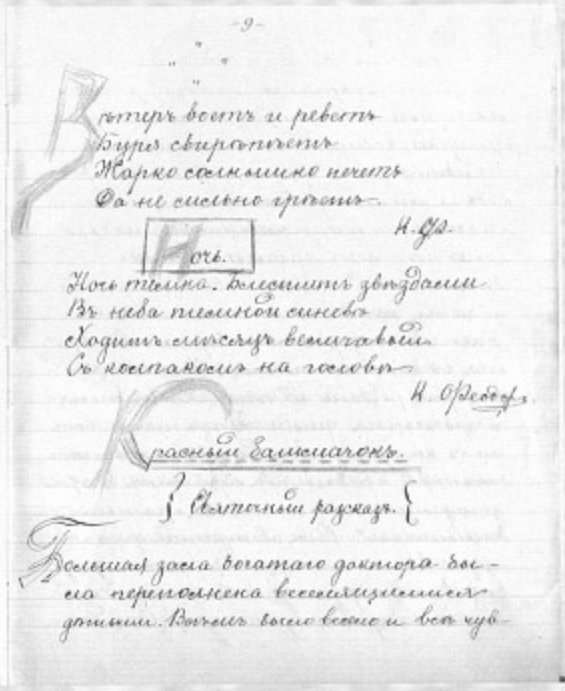 -9-
Вѣтеръ воетъ и реветъ
Буря свирѣпѣетъ
Жарко солнышко печетъ
Да не сильно грѣетъ
Н. Ѳ.
Ночь.
Ночь темна. Блеститъ звѣздами
Въ неба темной синевѣ
Ходитъ мѣсяцъ величавый
Съ колпакомъ на головѣ
Н. Ѳеодор.
Красный башмачокъ.
Святочный разсказъ.
Большая зала богатаго доктора бы-
ла переполнена веселящимися
дѣтьми. Всѣмъ было весело и всѣ чув-